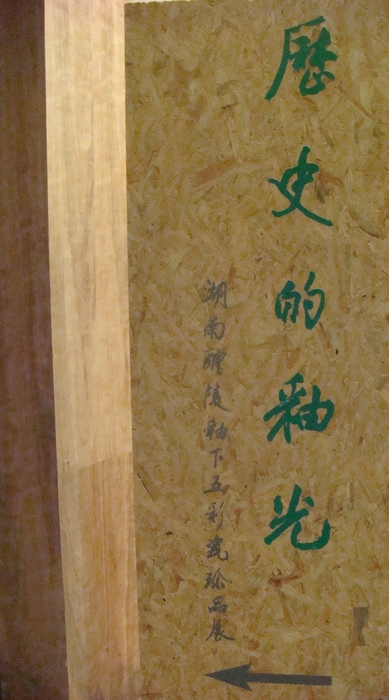 歷史的釉光
湖南醴陵釉下五彩瓷珍品展